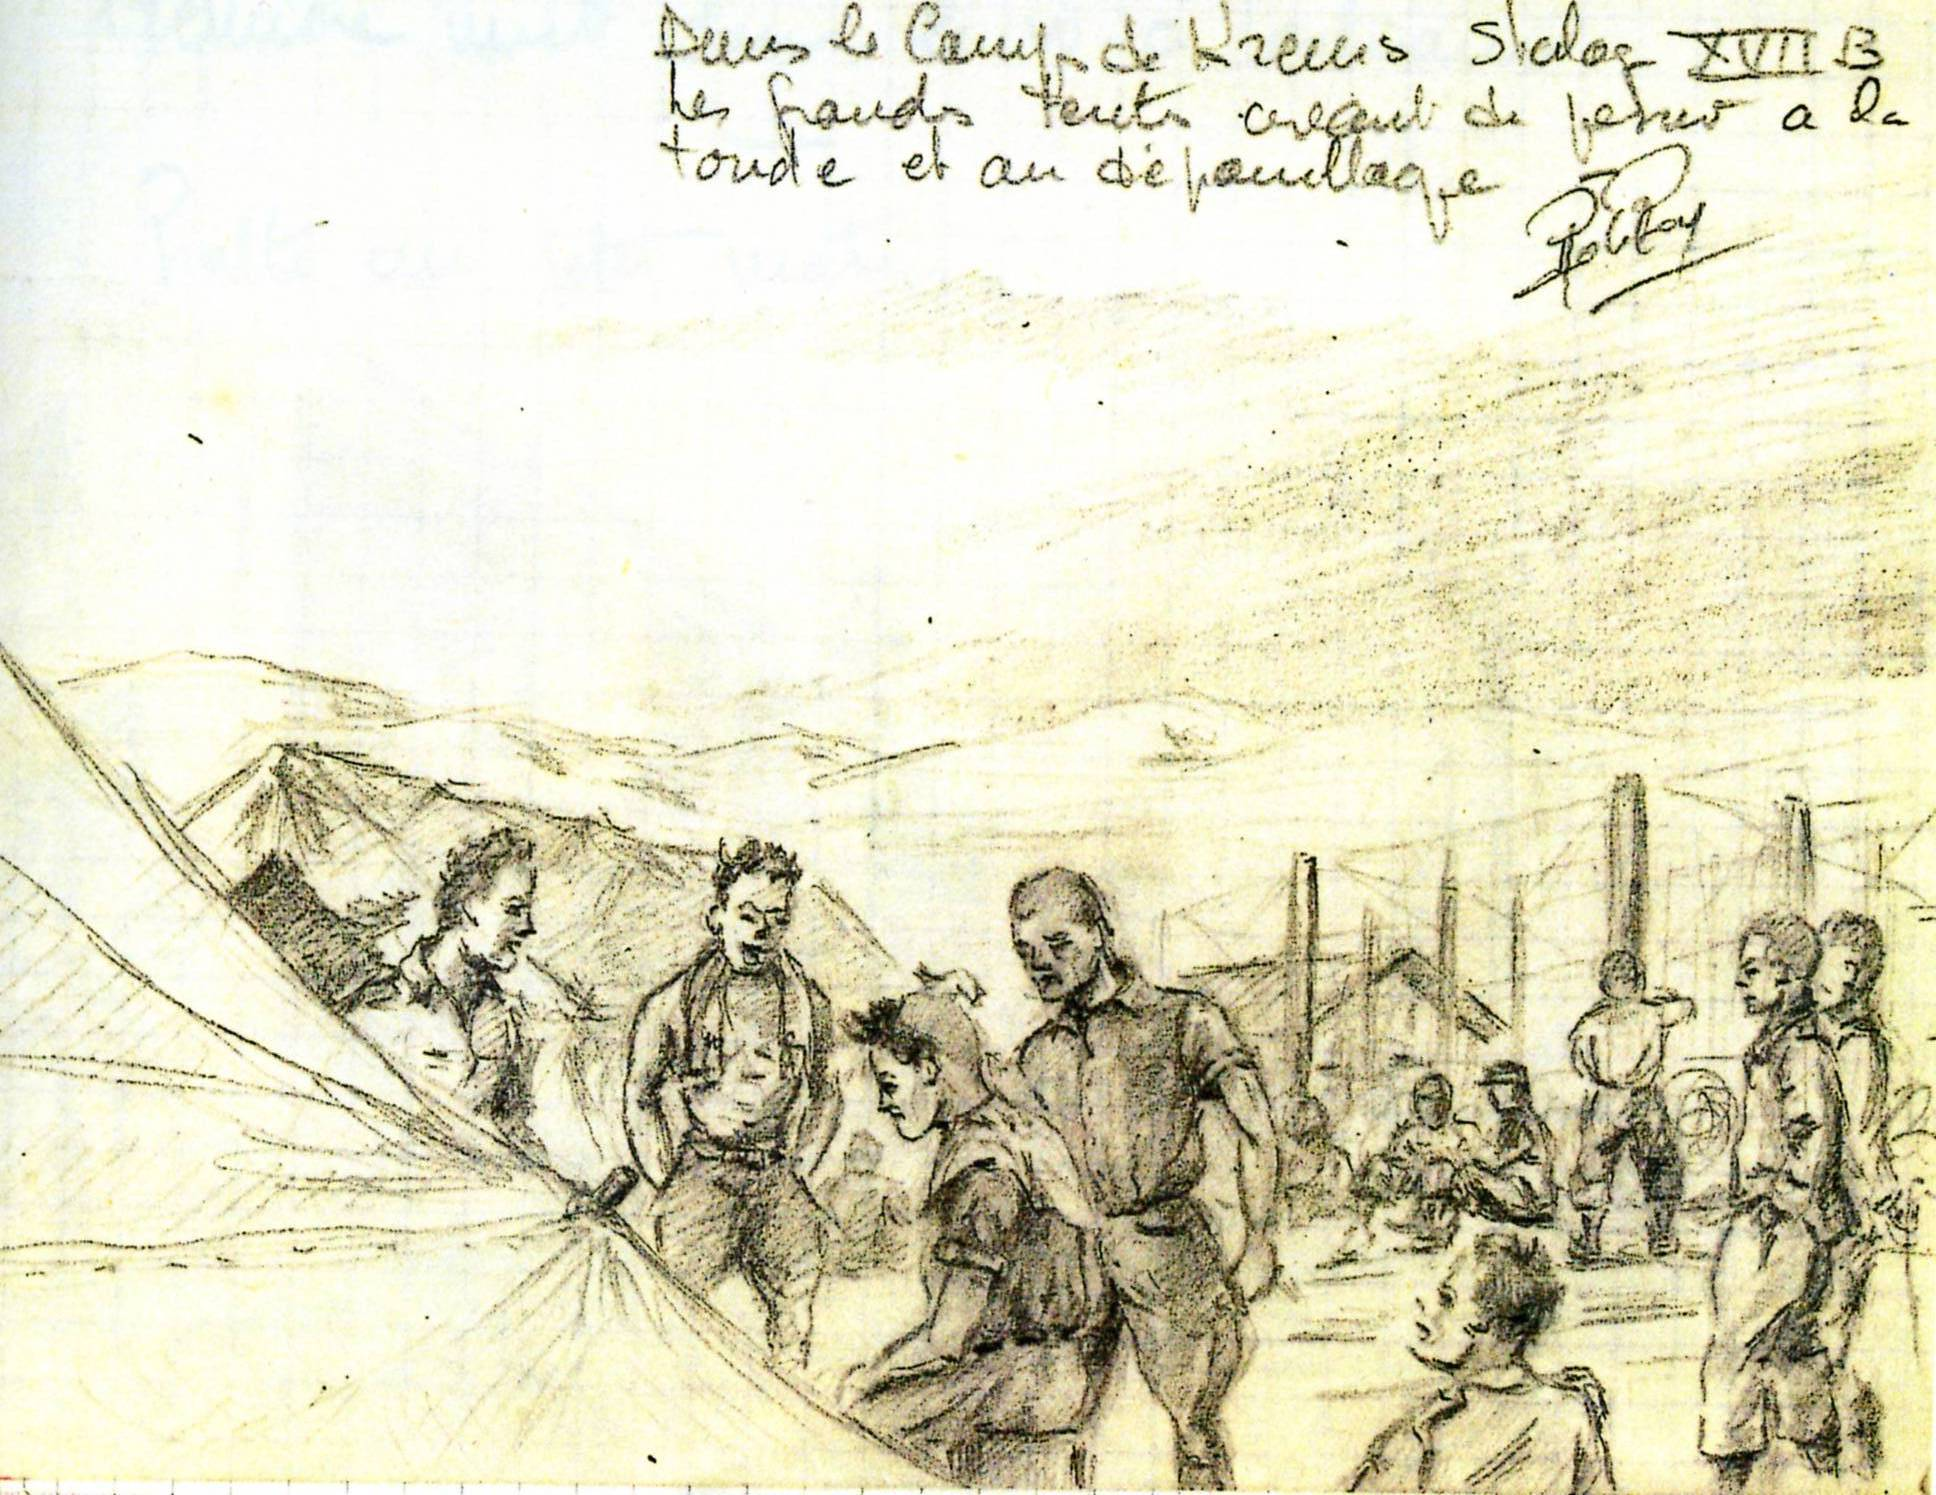 Dans le Camp de Krems Stalag XVII B
Les grands tentes avant de passer a la
tonde et au dépouillage